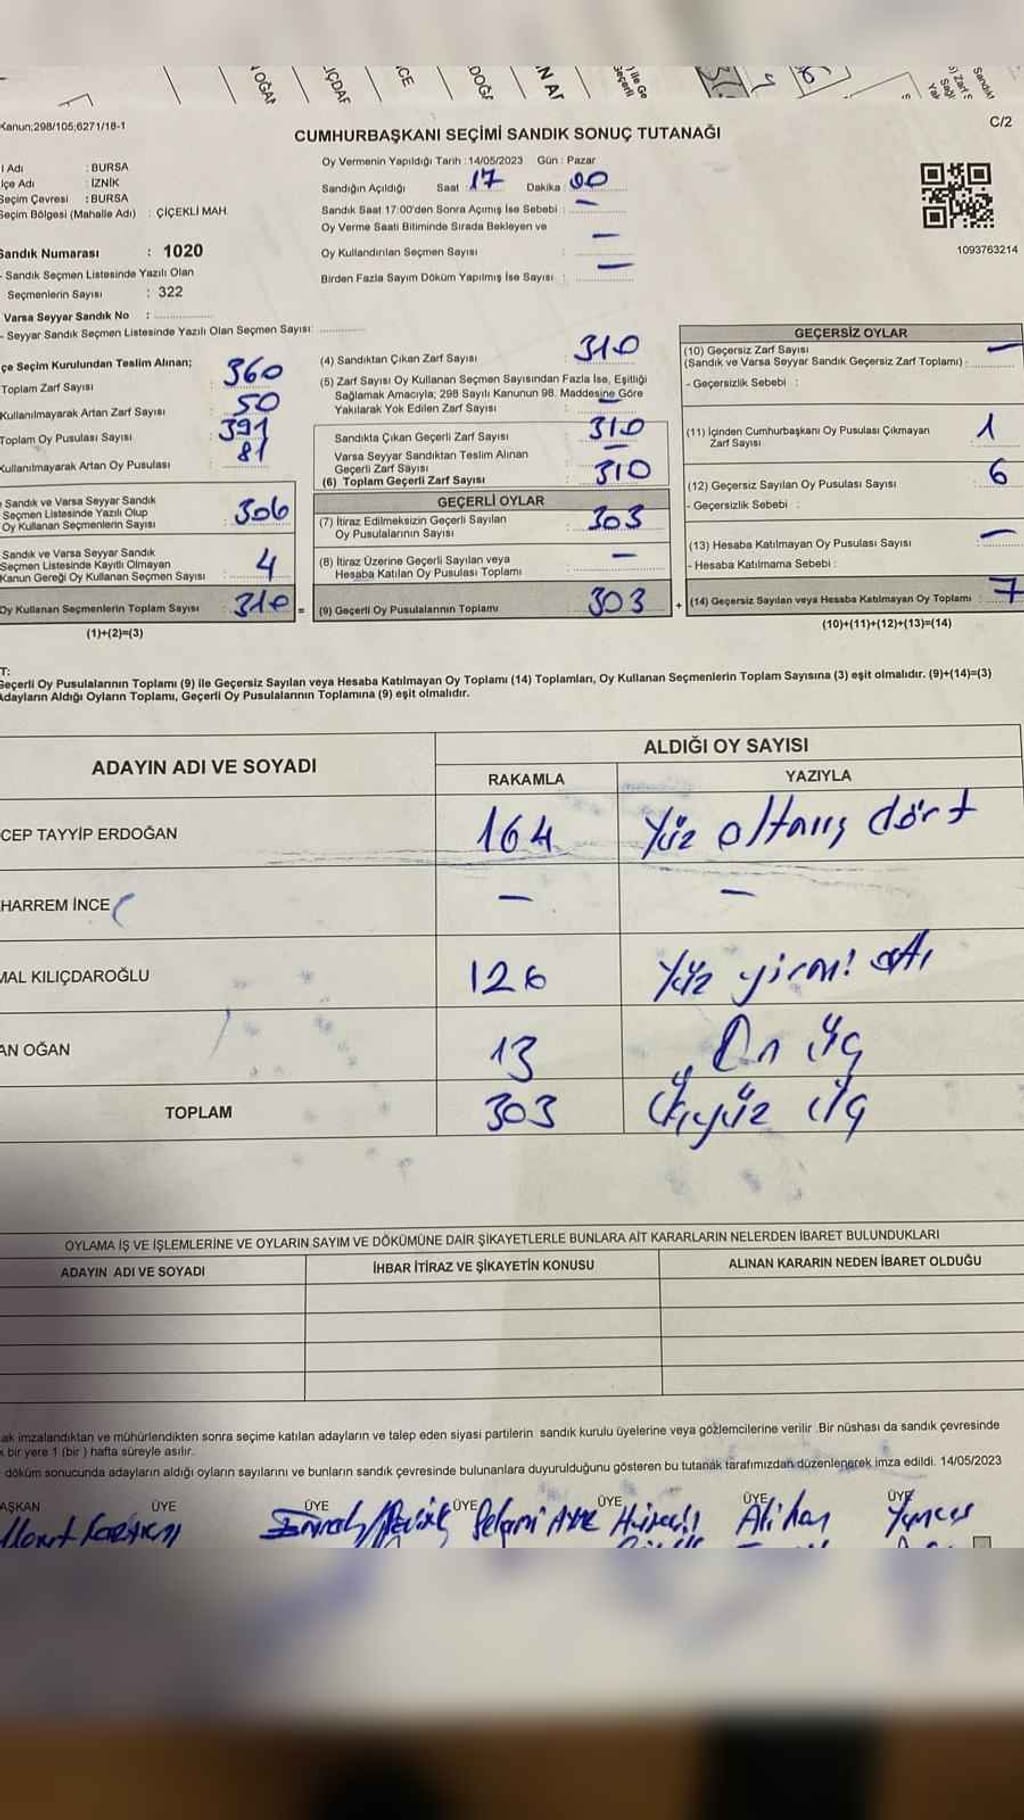 Kanun;298/105;6271/18-1
C/2
CUMHURBAŞKANI SEÇİMİ SANDIK SONUÇ TUTANAĞI
l Adı : BURSA
lçe Adı : İZNİK
Seçim Çevresi : BURSA
Seçim Bölgesi (Mahalle Adı) : ÇİÇEKLİ MAH.
Sandık Numarası : 1020
- Sandık Seçmen Listesinde Yazılı Olan
Seçmenlerin Sayısı : 322
Varsa Seyyar Sandık No :
- Seyyar Sandık Seçmen Listesinde Yazılı Olan Seçmen Sayısı:
Oy Vermenin Yapıldığı Tarih : 14/05/2023 Gün : Pazar
Sandığın Açıldığı Saat : 17 Dakika : 00
Sandık Saat 17:00'den Sonra Açımış İse Sebebi : —
Oy Verme Saati Bitiminde Sırada Bekleyen ve
Oy Kullandırılan Seçmen Sayısı : —
Birden Fazla Sayım Döküm Yapılmış İse Sayısı : —
1093763214
çe Seçim Kurulundan Teslim Alınan;
Toplam Zarf Sayısı : 360
Kullanılmayarak Artan Zarf Sayısı : 50
Toplam Oy Pusulası Sayısı : 391
Kullanılmayarak Artan Oy Pusulası : 81
Sandık ve Varsa Seyyar Sandık
Seçmen Listesinde Yazılı Olup
Oy Kullanan Seçmenlerin Sayısı : 306
Sandık ve Varsa Seyyar Sandık
Seçmen Listesinde Kayıtlı Olmayan
Kanun Gereği Oy Kullanan Seçmen Sayısı : 4
Oy Kullanan Seçmenlerin Toplam Sayısı : 310 =
(1)+(2)=(3)
(4) Sandıktan Çıkan Zarf Sayısı : 310
(5) Zarf Sayısı Oy Kullanan Seçmen Sayısından Fazla İse, Eşitliği
Sağlamak Amacıyla; 298 Sayılı Kanunun 98. Maddesine Göre
Yakılarak Yok Edilen Zarf Sayısı : —
Sandıkta Çıkan Geçerli Zarf Sayısı : 310
Varsa Seyyar Sandıktan Teslim Alınan
Geçerli Zarf Sayısı : —
(6) Toplam Geçerli Zarf Sayısı : 310
GEÇERLİ OYLAR
(7) İtiraz Edilmeksizin Geçerli Sayılan
Oy Pusulalarının Sayısı : 303
(8) İtiraz Üzerine Geçerli Sayılan veya
Hesaba Katılan Oy Pusulası Toplamı : —
(9) Geçerli Oy Pusulalarının Toplamı : 303 +
GEÇERSİZ OYLAR
(10) Geçersiz Zarf Sayısı
(Sandık ve Varsa Seyyar Sandık Geçersiz Zarf Toplamı) : —
- Geçersizlik Sebebi :
(11) İçinden Cumhurbaşkanı Oy Pusulası Çıkmayan
Zarf Sayısı : 1
(12) Geçersiz Sayılan Oy Pusulası Sayısı : 6
- Geçersizlik Sebebi :
(13) Hesaba Katılmayan Oy Pusulası Sayısı : —
- Hesaba Katılmama Sebebi :
(14) Geçersiz Sayılan veya Hesaba Katılmayan Oy Toplamı : 7
(10)+(11)+(12)+(13)=(14)
T:
Geçerli Oy Pusulalarının Toplamı (9) ile Geçersiz Sayılan veya Hesaba Katılmayan Oy Toplamı (14) Toplamları, Oy Kullanan Seçmenlerin Toplam Sayısına (3) eşit olmalıdır. (9)+(14)=(3)
Adayların Aldığı Oyların Toplamı, Geçerli Oy Pusulalarının Toplamına (9) eşit olmalıdır.
ADAYIN ADI VE SOYADI
ALDIĞI OY SAYISI
RAKAMLA YAZIYLA
CEP TAYYİP ERDOĞAN 164 Yüz altmış dört
HARREM İNCE — —
MAL KILIÇDAROĞLU 126 Yüz yirmi altı
AN OĞAN 13 On üç
TOPLAM 303 Üçyüz üç
OYLAMA İŞ VE İŞLEMLERİNE VE OYLARIN SAYIM VE DÖKÜMÜNE DAİR ŞİKAYETLERLE BUNLARA AİT KARARLARIN NELERDEN İBARET BULUNDUKLARI
ADAYIN ADI VE SOYADI İHBAR İTİRAZ VE ŞİKAYETİN KONUSU ALINAN KARARIN NEDEN İBARET OLDUĞU
ak imzalandıktan ve mühürlendikten sonra seçime katılan adayların ve talep eden siyasi partilerin sandık kurulu üyelerine veya gözlemcilerine verilir. Bir nüshası da sandık çevresinde
bir yere 1 (bir) hafta süreyle asılır.
döküm sonucunda adayların aldığı oyların sayılarını ve bunların sandık çevresinde bulunanlara duyurulduğunu gösteren bu tutanak tarafımızdan düzenlenerek imza edildi. 14/05/2023
AŞKAN ÜYE ÜYE ÜYE ÜYE ÜYE ÜYE
Selami Alihan